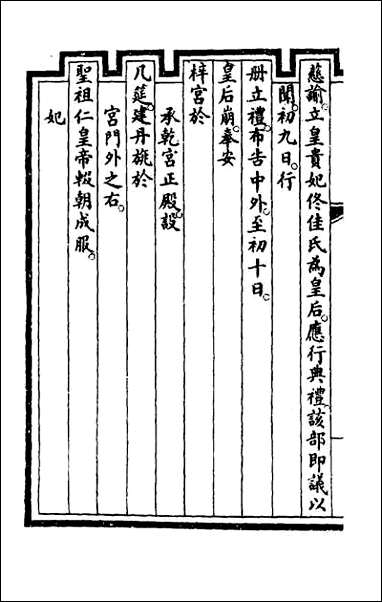 慈諭立皇貴妃佟佳氏為皇后。應行典禮。該部即議以
聞。初九日。行
册立禮。布告中外。至初十日。
皇后崩。奉安
梓宮於
承乾宮正殿。設
几筵。建丹旐於
宮門外之右。
聖祖仁皇帝輟朝成服。
妃